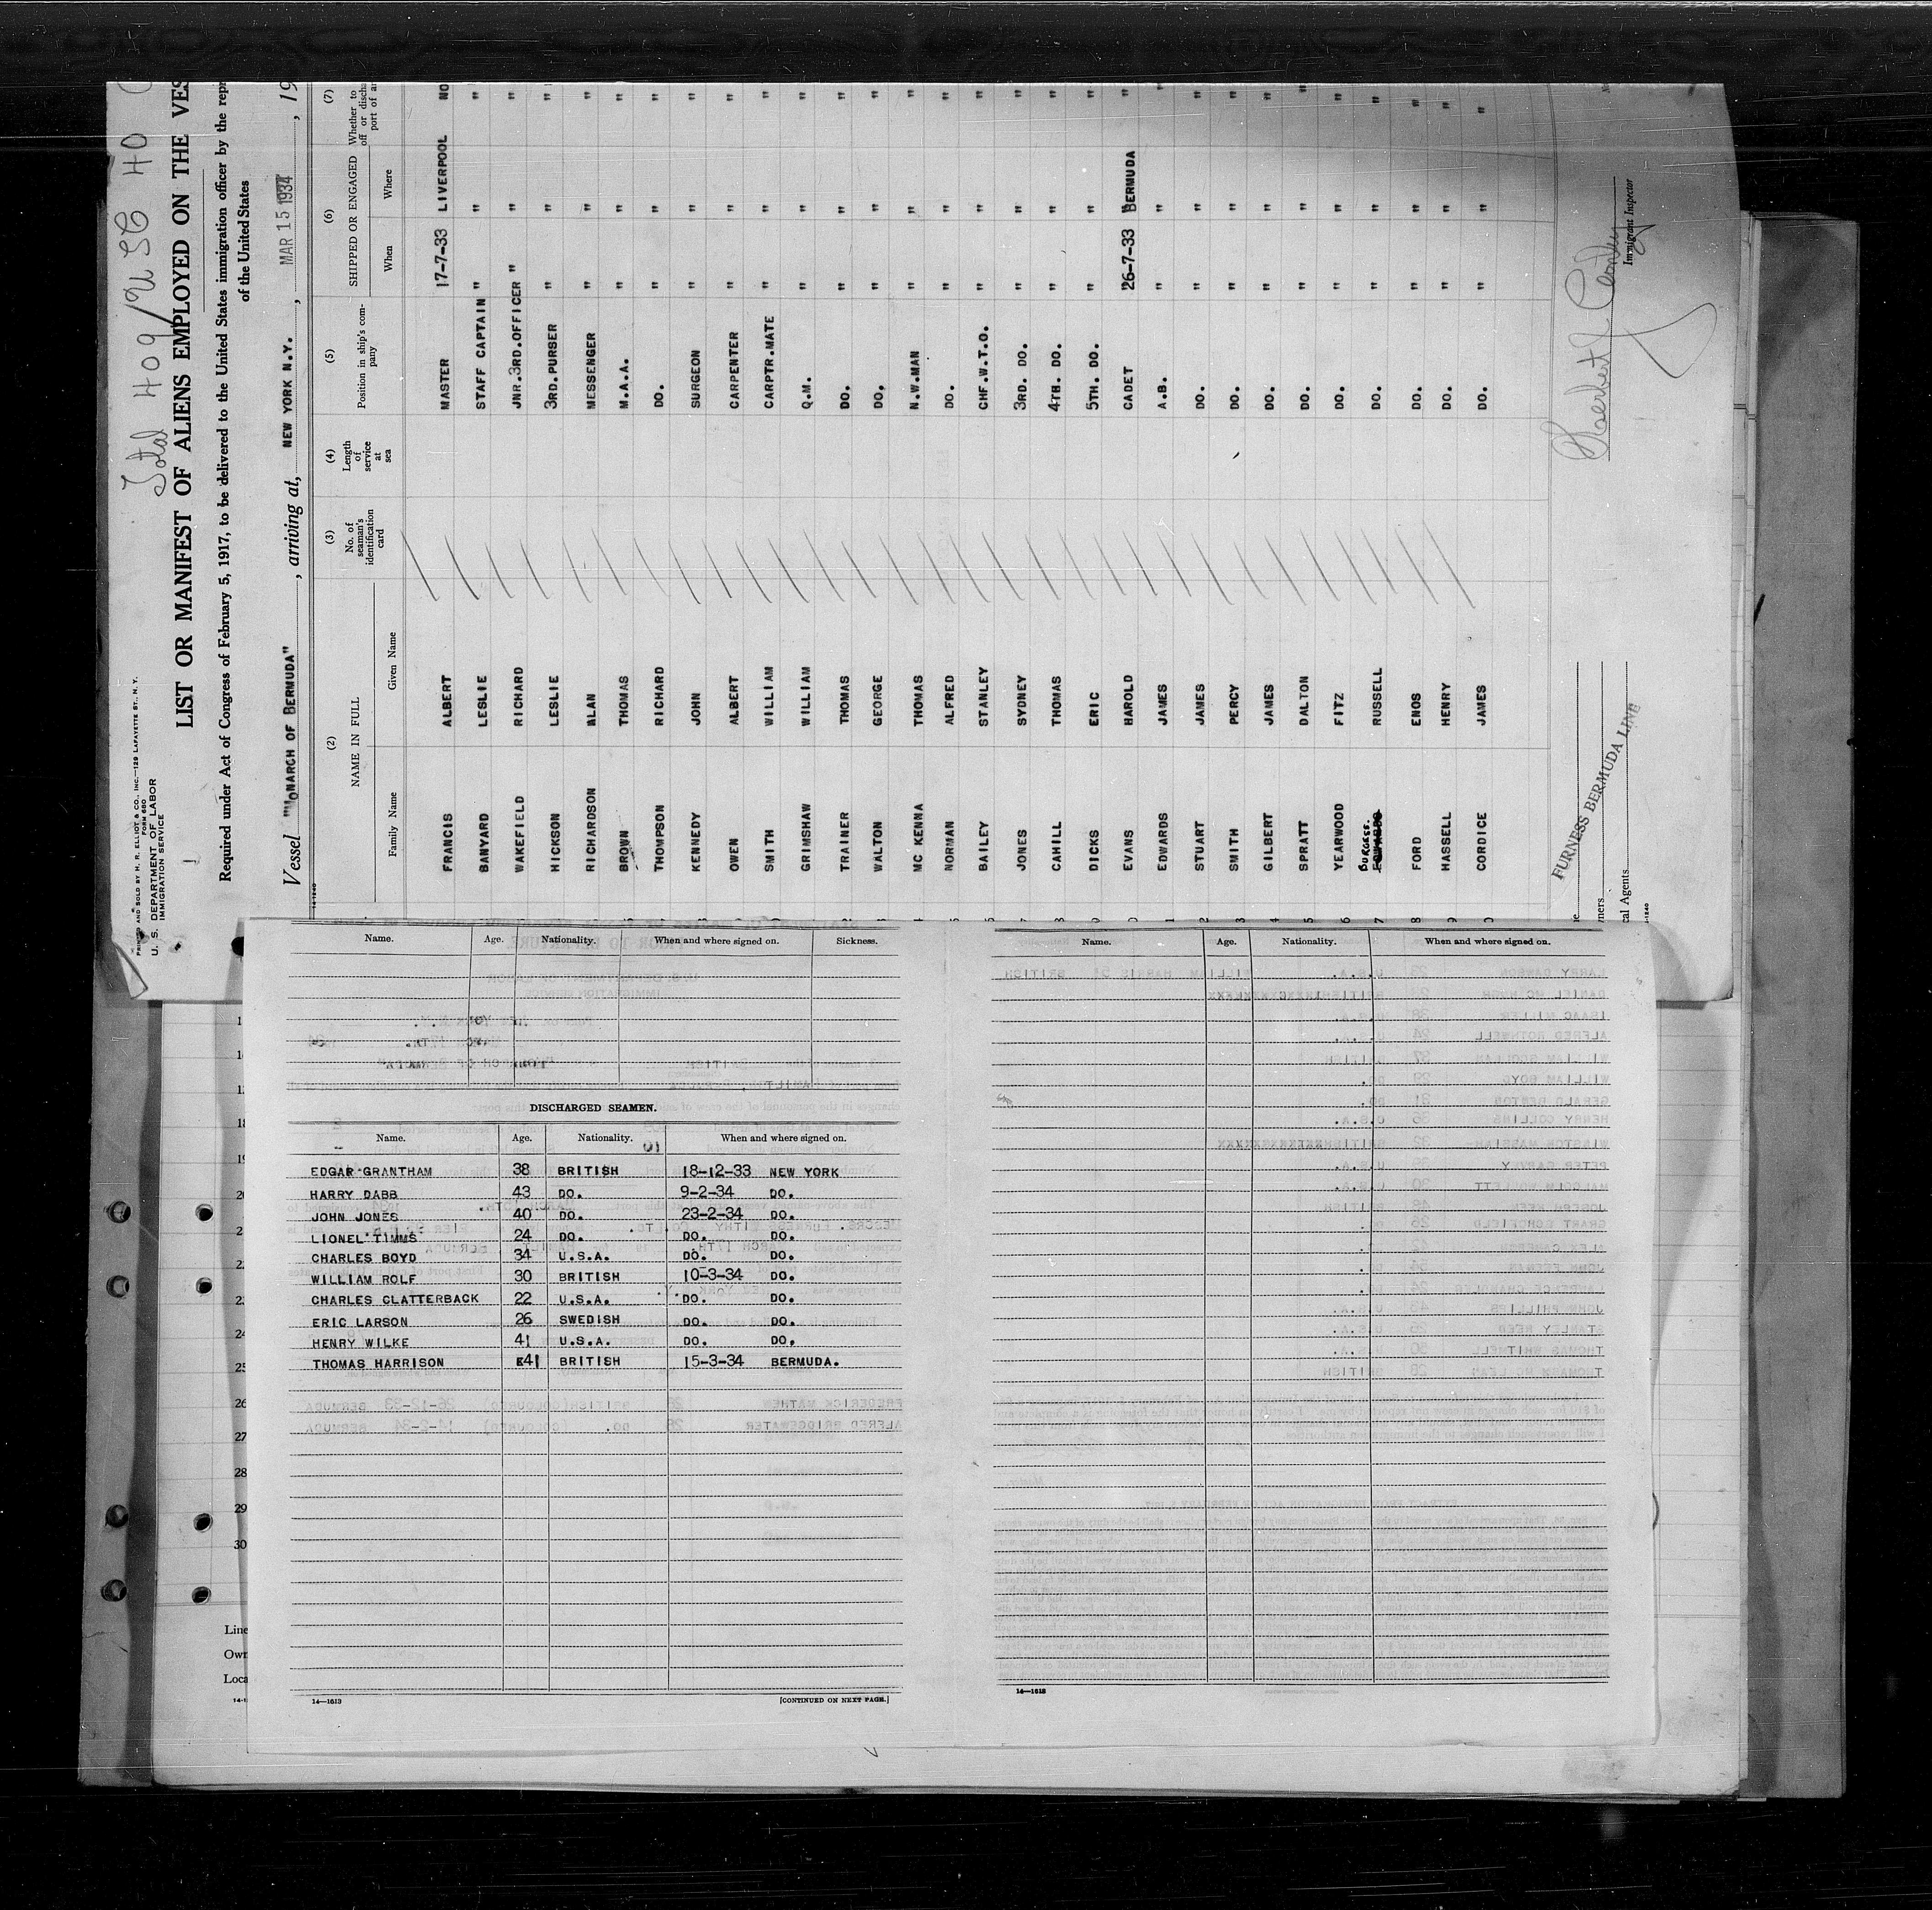 Total 409/USC 40
PRINTED AND SOLD BY H. R. ELLIOT & CO. INC.—129 LAFAYETTE ST., N.Y.
FORM 680
U. S. DEPARTMENT OF LABOR
IMMIGRATION SERVICE
LIST OR MANIFEST OF ALIENS EMPLOYED ON THE VES
Required under Act of Congress of February 5, 1917, to be delivered to the United States immigration officer by the repr
of the United States
Vessel "MONARCH OF BERMUDA", arriving at, NEW YORK N.Y., MAR 15 1934, 19
(2) (3) (4) (5) (6) (7)
NAME IN FULL No. of seaman's identification card Length of service at sea Position in ship's company SHIPPED OR ENGAGED Whether to
Family Name Given Name When Where
FRANCIS ALBERT MASTER 17-7-33 LIVERPOOL NO
BANYARD LESLIE STAFF CAPTAIN " " "
WAKEFIELD RICHARD JNR.3RD.OFFICER " " "
HICKSON LESLIE 3RD.PURSER " " "
RICHARDSON ALAN MESSENGER " " "
BROWN THOMAS M.A.A. " " "
THOMPSON RICHARD DO. " " "
KENNEDY JOHN SURGEON " " "
OWEN ALBERT CARPENTER " " "
SMITH WILLIAM CARPTR.MATE " " "
GRIMSHAW WILLIAM Q.M. " " "
TRAINER THOMAS DO. " " "
WALTON GEORGE DO. " " "
MC KENNA THOMAS N.W.MAN " " "
NORMAN ALFRED DO. " " "
BAILEY STANLEY CHF.W.T.O. " " "
JONES SYDNEY 3RD. DO. " " "
CAHILL THOMAS 4TH. DO. " " "
DICKS ERIC 5TH. DO. " " "
EVANS HAROLD CADET 26-7-33 BERMUDA "
EDWARDS JAMES A.B. " " "
STUART JAMES DO. " " "
SMITH PERCY DO. " " "
GILBERT JAMES DO. " " "
SPRATT DALTON DO. " " "
YEARWOOD FITZ DO. " " "
BURGESS. RUSSELL DO. " " "
FORD ENOS DO. " " "
HASSELL HENRY DO. " " "
CORDICE JAMES DO. " " "
FURNESS BERMUDA LINE
cal Agents
Immigrant Inspector
Name. Age. Nationality. When and where signed on. Sickness.
DISCHARGED SEAMEN.
Name. Age. Nationality. When and where signed on.
EDGAR GRANTHAM 38 BRITISH 18-12-33 NEW YORK
HARRY DABB 43 DO. 9-2-34 DO.
JOHN JONES 40 DO. 23-2-34 DO.
LIONEL TIMMS 24 DO. DO. DO.
CHARLES BOYD 34 U.S.A. DO. DO.
WILLIAM ROLF 30 BRITISH 10-3-34 DO.
CHARLES CLATTERBACK 22 U.S.A. DO. DO.
ERIC LARSON 26 SWEDISH DO. DO.
HENRY WILKE 41 U.S.A. DO. DO.
THOMAS HARRISON 41 BRITISH 15-3-34 BERMUDA.
14—1613 [CONTINUED ON NEXT PAGE.]
Name. Age. Nationality. When and where signed on.
14—1613
26
27
28
29
30
Line
Own
Loca